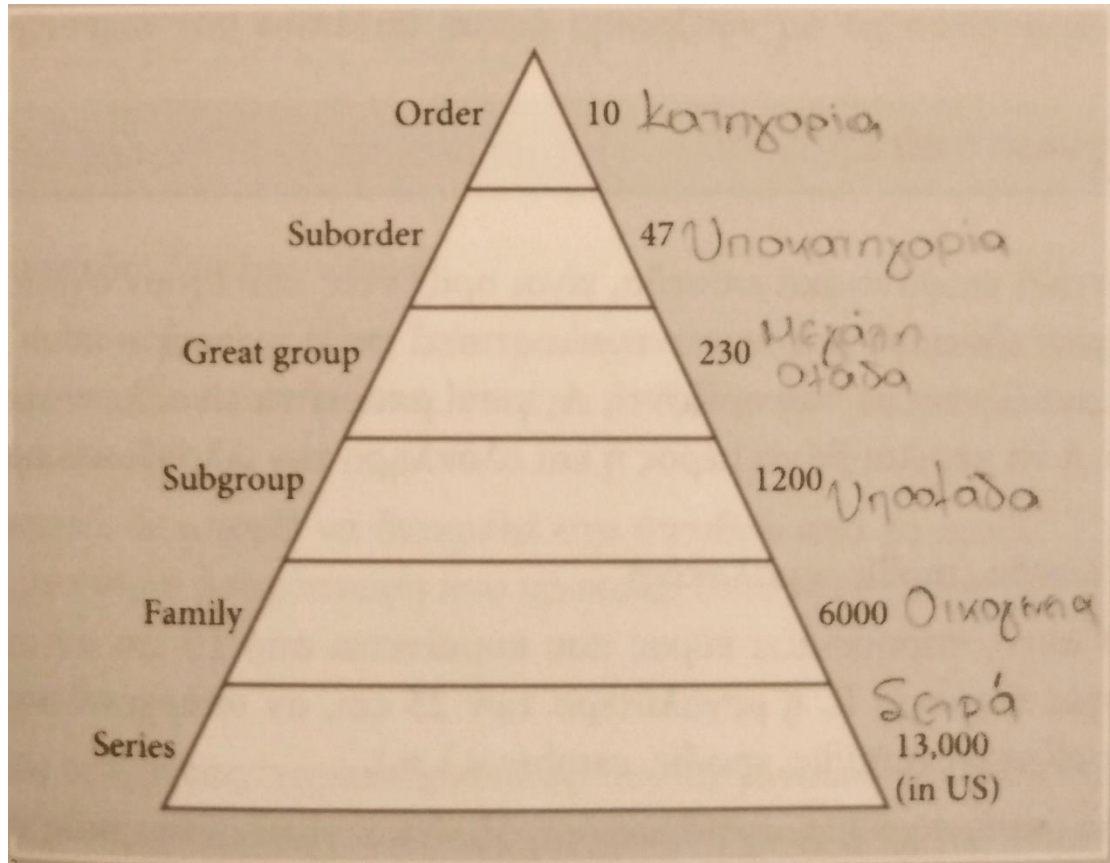 Order 10 Κατηγορία
Suborder 47 Υποκατηγορία
Great group 230 Μεγάλη
ομάδα
Subgroup 1200 Υποομάδα
Family 6000 Οικογένεια
Σειρά
Series 13,000
(in US)